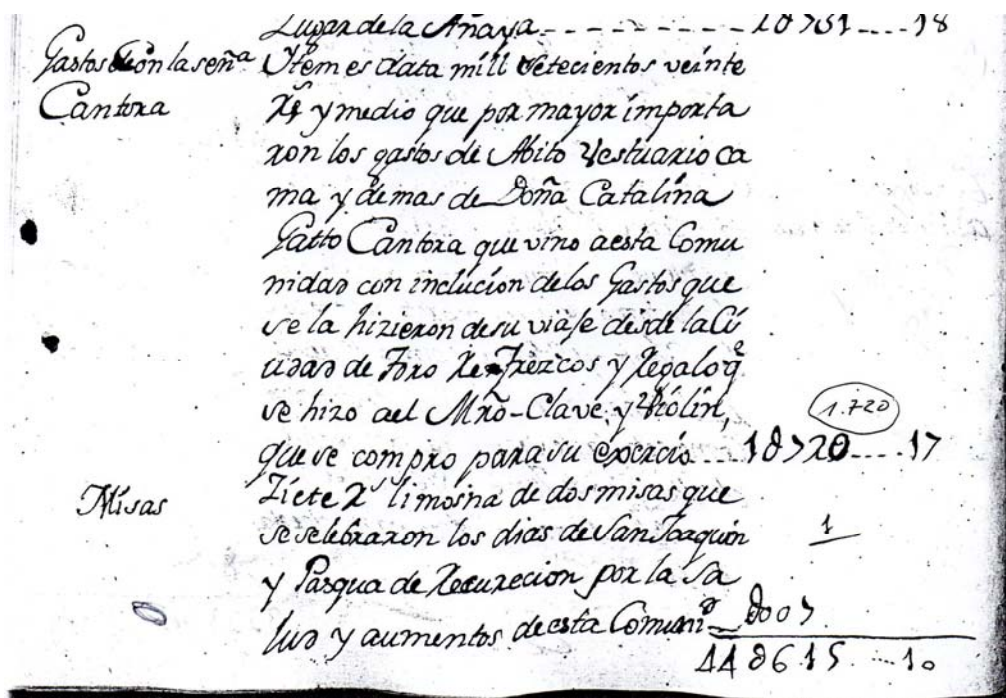 Lugar de la Anaya - - - - - - - - - 1U731 .... 18
Gastos con la señª Cantora
Ytem es data mill setecientos veinte
Rs y medio que por mayor importa
ron los gastos de Abito Vestuario ca
ma y demas de Doña Catalina
Gatto Cantora que vino aesta Comu
nidad con inclucion delos Gastos que
se la hizieron desu viaje desde la Ci
udad de Toro Refrezcos y Regalo q̃
se hizo ael Mrõ - Clave y Violin,
que se compro para su exercio .... 1U720 .... 17
1.720
Misas
Ziete Rˢ limosna de dos misas que
se selebraron los dias de San Joaquin
1
y Pasqua de Recurecion por la Sa
lud y aumentos de esta Comunᵈ U007
44U615 .... 10